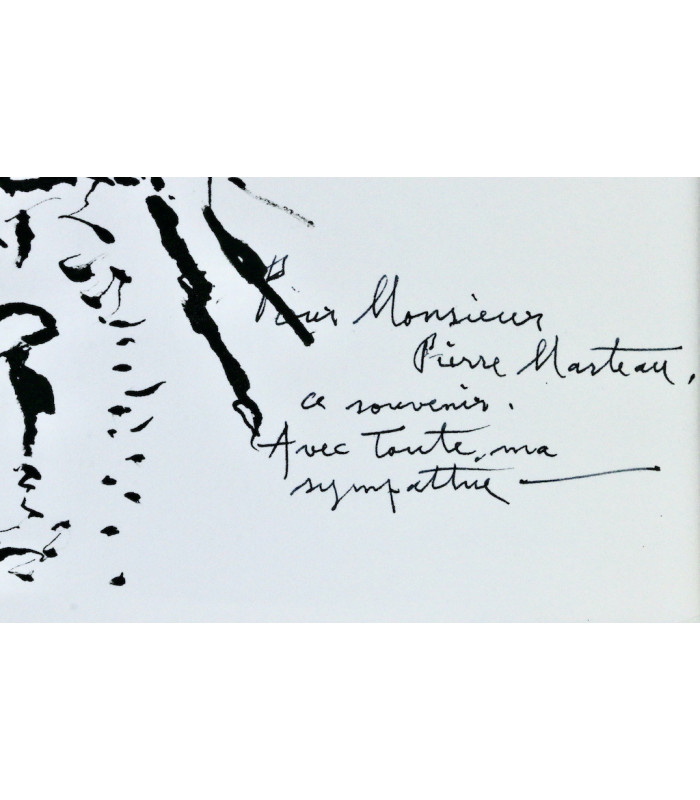 Pour Monsieur
Pierre Marteau,
ce souvenir.
Avec Toute, ma
sympathie